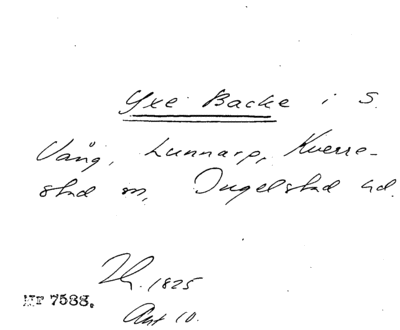 Yxe Backe i S.
Vång, Lunnarp, Kverre-
stad sn, Ingelstad hd.
Th. 1825
Ant 10.
MF 7588.